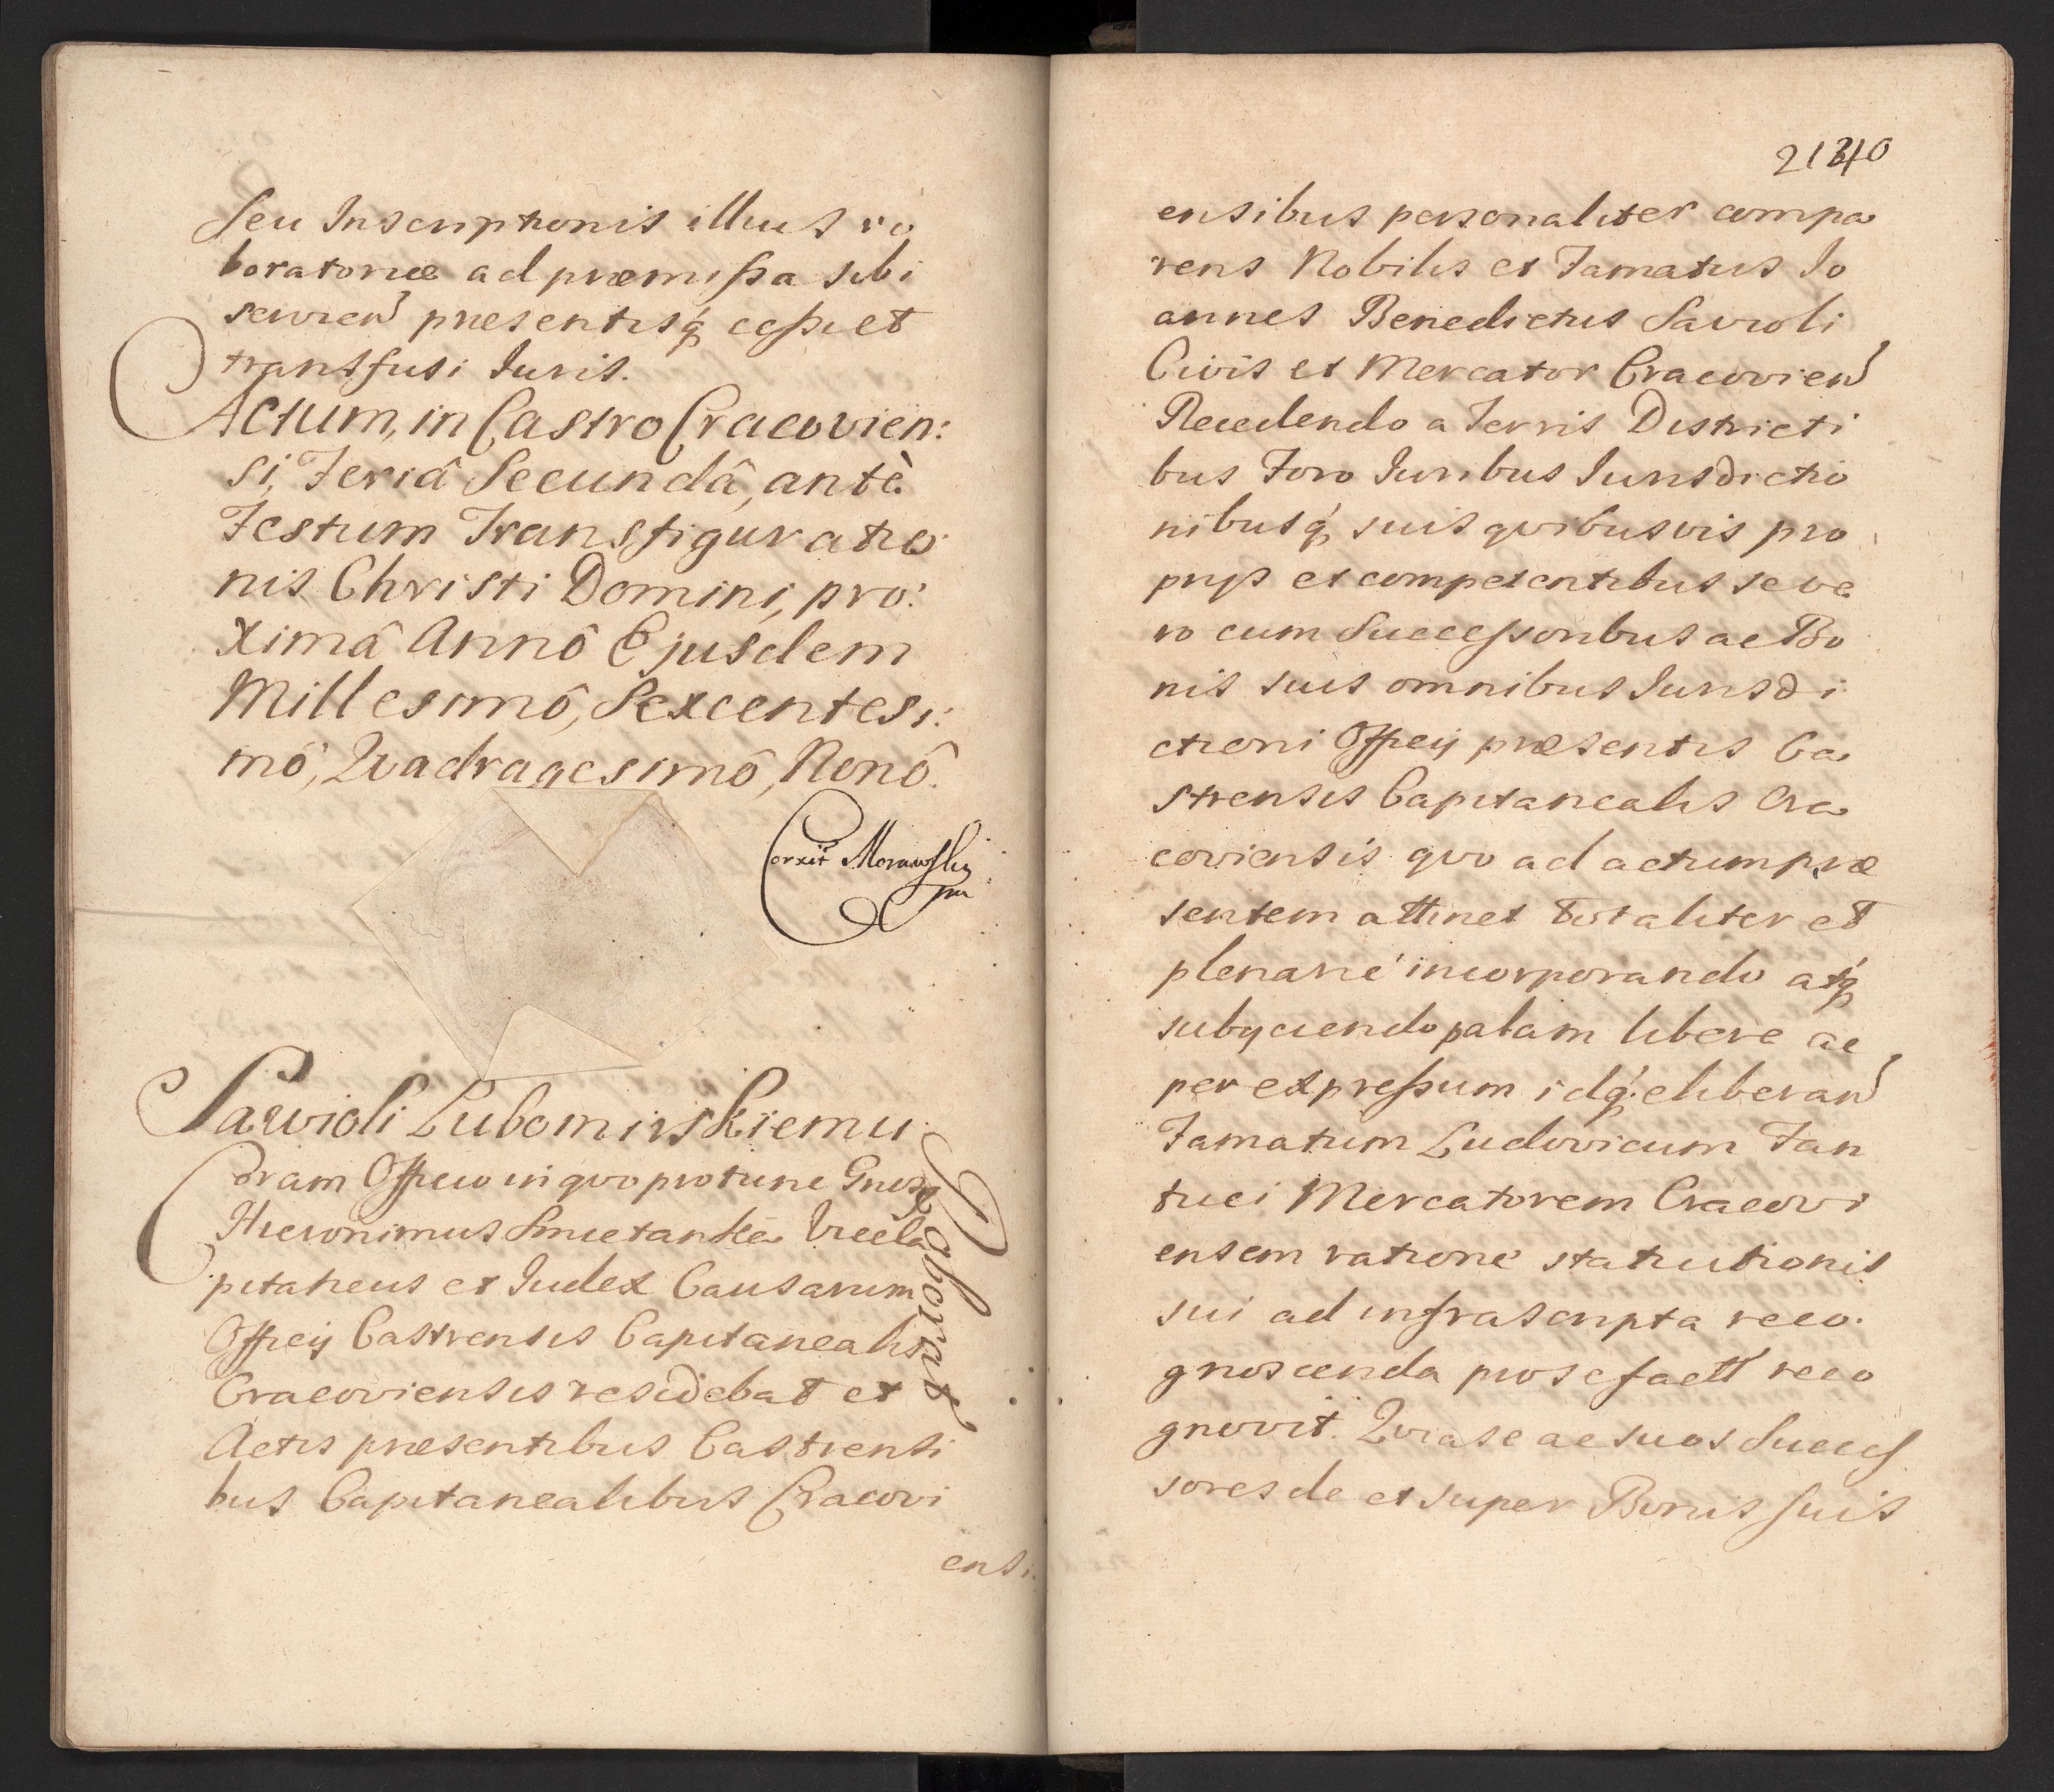 Seu Inscriptionis illius ro
boratoriæ ad præmissa sibi
servien presentisq́ cessi et
transfusi Iuris.
Actum, in Castro Cracovien:
si, Feriâ Secundâ, antè
Festum Transfiguratio
nis Christi Domini, pro:
ximâ Annô Ejusdem
Millesimô, Sexcentesi:
mô, Qvadragesimô, Nonô.
Correxit Morawski
mp
Sawioli Lubomirskiemu
roborat
Coram Officio in qvo pro tunc Gnosus
Hieronimus Smietanka Viceca
pitaneus et Iudex Causarum
Officij Castrensis Capitanealis
Cracoviensis residebat et
Actis præsentibus Castrensi
bus Capitanealibus Cracovi
ensi:
21340
ensibus personaliter compa
rens Nobilis et Famatus Io
annes Benedictus Savioli
Civis et Mercator Cracovien
Recedendo a Terris Districti
bus Foro Iuribus Iurisdictio
nibusq́ suis qvibusvis pro
prijs et competentibus se ve
ro cum Successoribus ac Bo
nis suis omnibus Iurisdi
ctioni Officij præsentis Ca
strensis Capitanealis Cra
coviensis qvo ad actum præ
sentem attinet totaliter et
plenarie incorporando atq́
subijciendo palam libere ac
per expressum idq́: eliberan
Famatum Ludovicum Fan
tuci Mercatorem Cracovi
ensem ratione statiutionis
sui ad infrascripta reco.
gnoscenda pro se factt reco
gnovit. Qvia se ac suos Succes
sores de et super Bonis suis